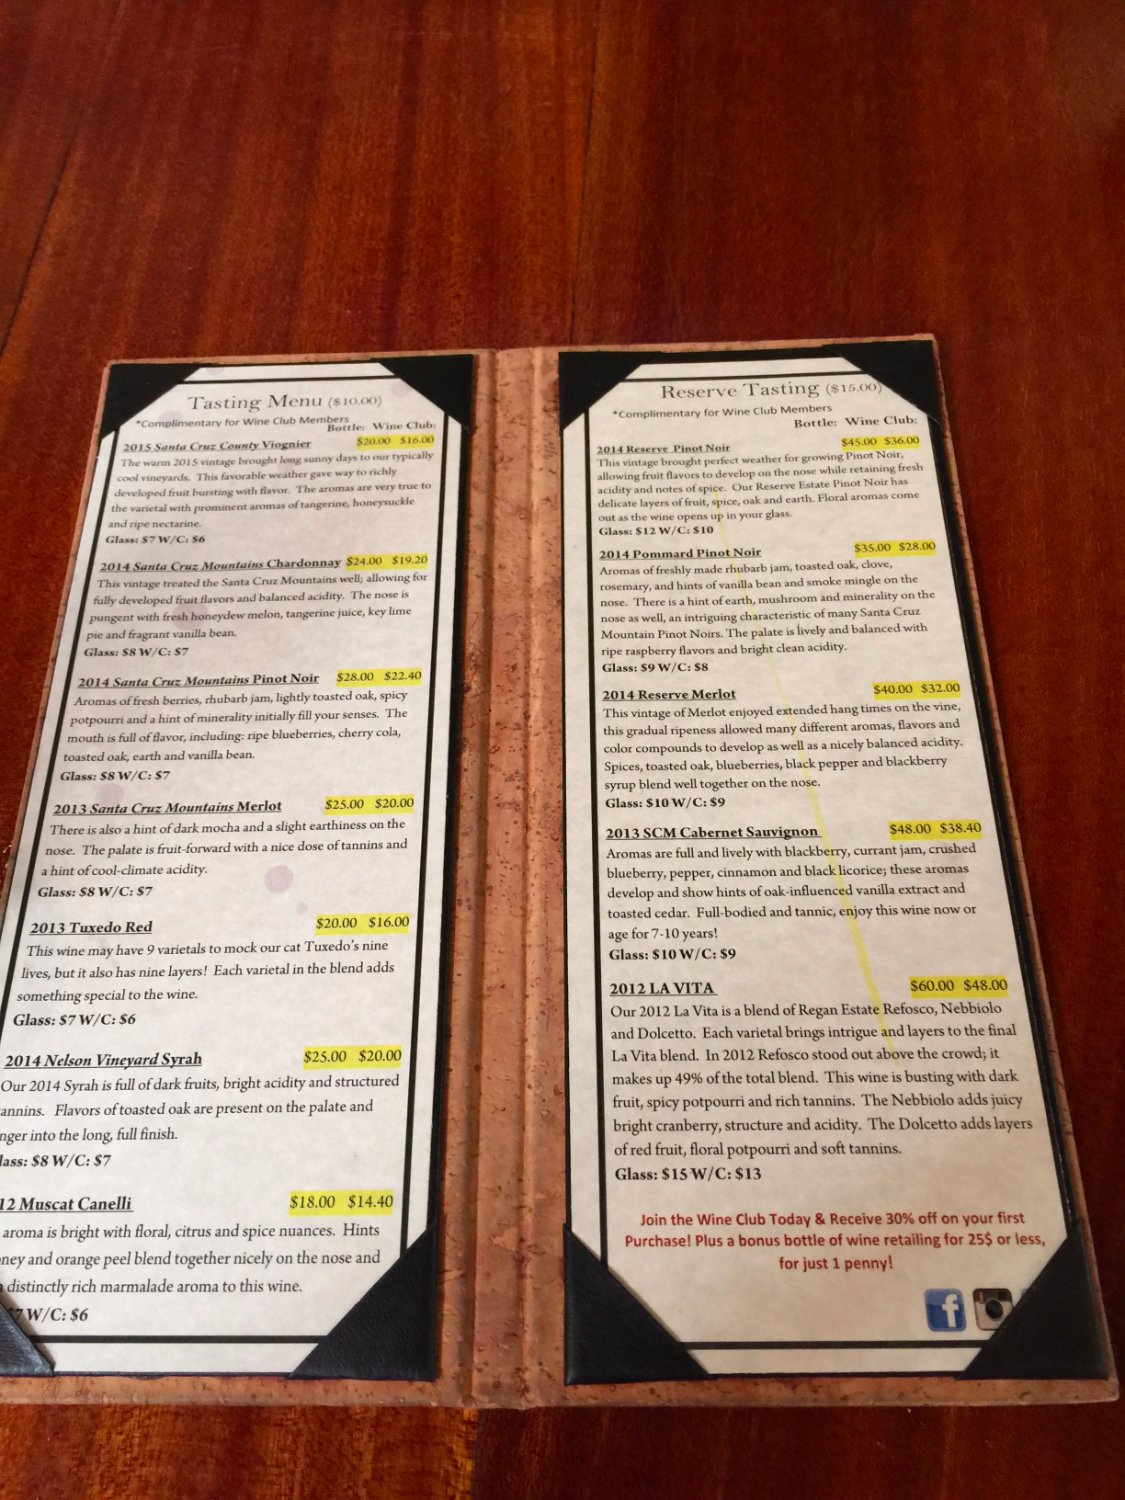 Tasting Menu ($10.00)
*Complimentary for Wine Club Members
Bottle: Wine Club:
2015 Santa Cruz County Viognier $20.00 $16.00
The warm 2015 vintage brought long sunny days to our typically
cool vineyards. This favorable weather gave way to richly
developed fruit bursting with flavor. The aromas are very true to
the varietal with prominent aromas of tangerine, honeysuckle
and ripe nectarine.
Glass: $7 W/C: $6
2014 Santa Cruz Mountains Chardonnay $24.00 $19.20
This vintage treated the Santa Cruz Mountains well; allowing for
fully developed fruit flavors and balanced acidity. The nose is
pungent with fresh honeydew melon, tangerine juice, key lime
pie and fragrant vanilla bean.
Glass: $8 W/C: $7
2014 Santa Cruz Mountains Pinot Noir $28.00 $22.40
Aromas of fresh berries, rhubarb jam, lightly toasted oak, spicy
potpourri and a hint of minerality initially fill your senses. The
mouth is full of flavor, including: ripe blueberries, cherry cola,
toasted oak, earth and vanilla bean.
Glass: $8 W/C: $7
2013 Santa Cruz Mountains Merlot $25.00 $20.00
There is also a hint of dark mocha and a slight earthiness on the
nose. The palate is fruit-forward with a nice dose of tannins and
a hint of cool-climate acidity.
Glass: $8 W/C: $7
2013 Tuxedo Red $20.00 $16.00
This wine may have 9 varietals to mock our cat Tuxedo's nine
lives, but it also has nine layers! Each varietal in the blend adds
something special to the wine.
Glass: $7 W/C: $6
2014 Nelson Vineyard Syrah $25.00 $20.00
Our 2014 Syrah is full of dark fruits, bright acidity and structured
annins. Flavors of toasted oak are present on the palate and
nger into the long, full finish.
lass: $8 W/C: $7
12 Muscat Canelli $18.00 $14.40
aroma is bright with floral, citrus and spice nuances. Hints
ney and orange peel blend together nicely on the nose and
distinctly rich marmalade aroma to this wine.
$7 W/C: $6
Reserve Tasting ($15.00)
*Complimentary for Wine Club Members
Bottle: Wine Club:
2014 Reserve Pinot Noir $45.00 $36.00
This vintage brought perfect weather for growing Pinot Noir,
allowing fruit flavors to develop on the nose while retaining fresh
acidity and notes of spice. Our Reserve Estate Pinot Noir has
delicate layers of fruit, spice, oak and earth. Floral aromas come
out as the wine opens up in your glass.
Glass: $12 W/C: $10
2014 Pommard Pinot Noir $35.00 $28.00
Aromas of freshly made rhubarb jam, toasted oak, clove,
rosemary, and hints of vanilla bean and smoke mingle on the
nose. There is a hint of earth, mushroom and minerality on the
nose as well, an intriguing characteristic of many Santa Cruz
Mountain Pinot Noirs. The palate is lively and balanced with
ripe raspberry flavors and bright clean acidity.
Glass: $9 W/C: $8
2014 Reserve Merlot $40.00 $32.00
This vintage of Merlot enjoyed extended hang times on the vine,
this gradual ripeness allowed many different aromas, flavors and
color compounds to develop as well as a nicely balanced acidity.
Spices, toasted oak, blueberries, black pepper and blackberry
syrup blend well together on the nose.
Glass: $10 W/C: $9
2013 SCM Cabernet Sauvignon $48.00 $38.40
Aromas are full and lively with blackberry, currant jam, crushed
blueberry, pepper, cinnamon and black licorice; these aromas
develop and show hints of oak-influenced vanilla extract and
toasted cedar. Full-bodied and tannic, enjoy this wine now or
age for 7-10 years!
Glass: $10 W/C: $9
2012 LA VITA $60.00 $48.00
Our 2012 La Vita is a blend of Regan Estate Refosco, Nebbiolo
and Dolcetto. Each varietal brings intrigue and layers to the final
La Vita blend. In 2012 Refosco stood out above the crowd; it
makes up 49% of the total blend. This wine is busting with dark
fruit, spicy potpourri and rich tannins. The Nebbiolo adds juicy
bright cranberry, structure and acidity. The Dolcetto adds layers
of red fruit, floral potpourri and soft tannins.
Glass: $15 W/C: $13
Join the Wine Club Today & Receive 30% off on your first
Purchase! Plus a bonus bottle of wine retailing for 25$ or less,
for just 1 penny!
f